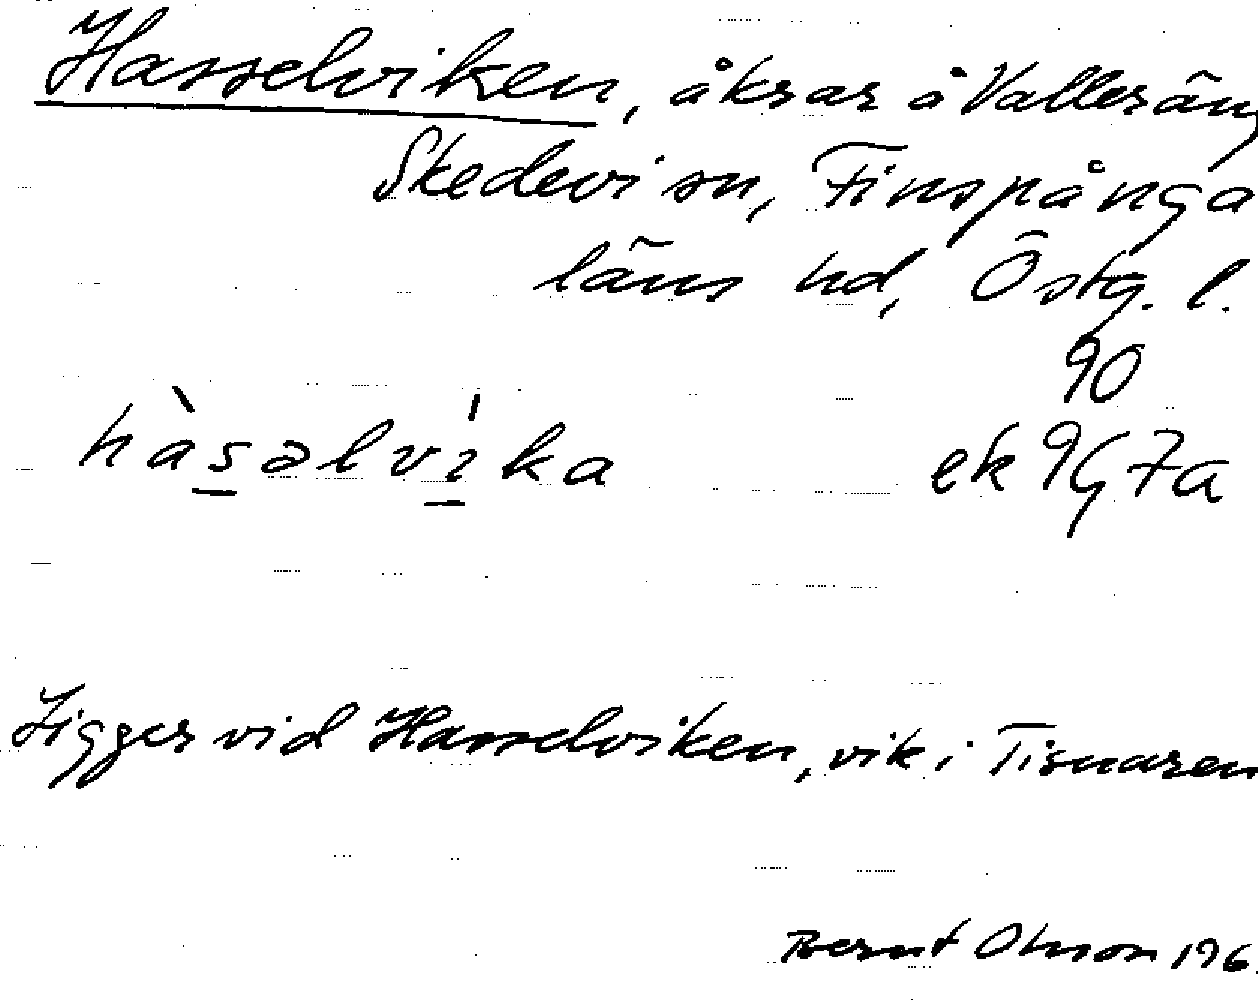 Hasselviken, åkrar å Valleräng
Skedevi sn, Finspånga
läns hd, Östg. l.
90
hàsəlvi̍ka ek 9G7a
Ligger vid Hasselviken, vik i Tisnaren
Bernt Olsson 196